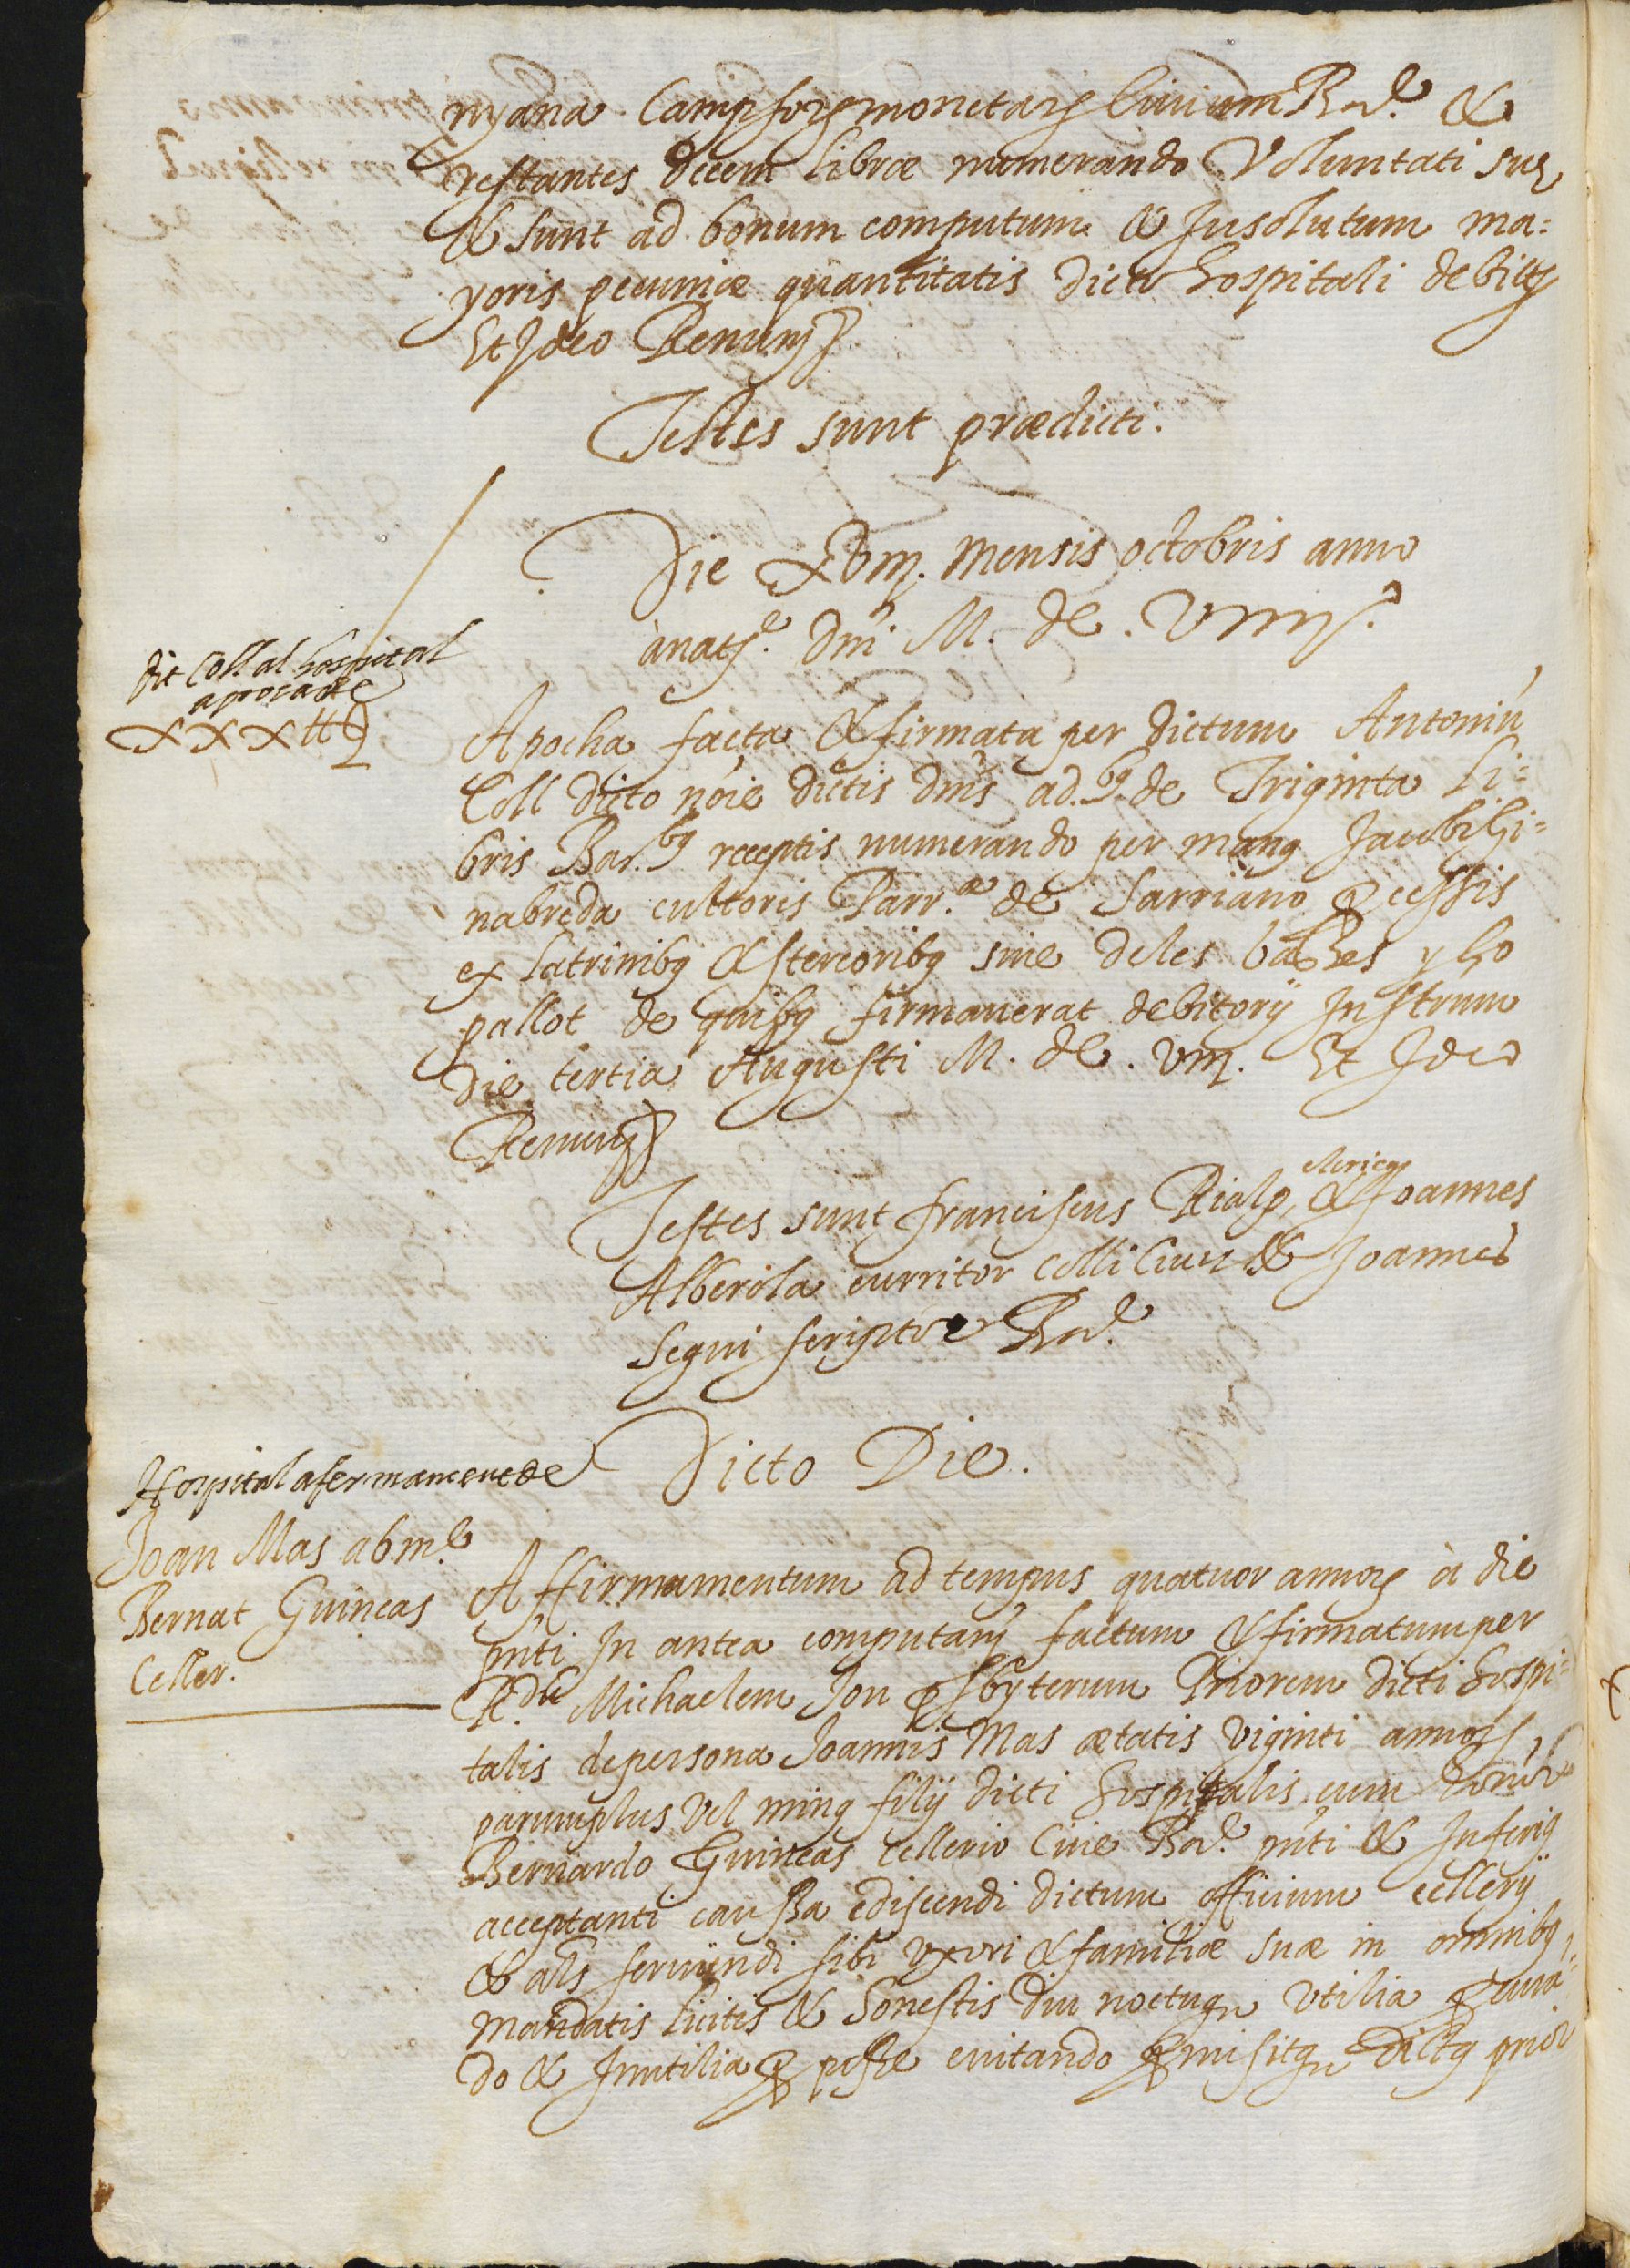 nyana Campsorẽ monetarẽ Civium Barẽ. &
restantes decem libræ numerando Voluntati suę
& sunt ad bonum computum & Insolutum ma=
yoris pecuniæ quantitatis dicto hospitali debitę
Et Ideo Renunẽ
Testes sunt prædicti.
Die xviij. mensis octobris anno
à natẽ. Dñi M. dc. Viiij.
dit Coll al hospital
apocade
xxx ll
Apocha facta & firmata per dictum Antoniũ
Coll dicto nõie dictis dñis ad.bꝯ de Triginta li=
bris Bar.bꝯ receptis numerando per manꝯ Jacobi Gi=
nabreda cultoris Parr.æ de Sarriano ꝓcessis
ex latrinibꝯ & stercoribꝯ sive de les basses y lo
pallot de quibꝯ firmaverat debitorij Instrum
die tertia Augusti M. dc. viij. Et Ideo
Renunẽ
Testes sunt franciscus Rialp, clericꝯ & Joannes
Alberola curritor colli Civis & Joannes
Segui scriptor Barẽ.
Dicto Die.
Hospital afermament de
Joan Mas ab m.e
Bernat Guineas
Celler.
Affirmamentum ad tempus quatuor annorẽ à die
pñti In antea computanẽ factum & firmatum per
R.dũ Michaelem Jon ꝓsbyterum Priorem dicti hospi=
talis de persona Joannis Mas ætatis viginti annorẽ,
parum plus vel minꝯ filij dicti hospitalis cum
Bernardo Guineas Cellerio Cive Barẽ. pñti & Inferiꝯ
acceptanti caussa ediscendi dictum officium cellerij
& aĩs serviendi sibi uxori & familiæ suæ in omnibꝯ
mandatis licitis & honestis diu noctuqꝫ utilia ꝓcurã=
do & Inutilia ꝓ posse evitando ꝓmisitqꝫ dictꝯ prior